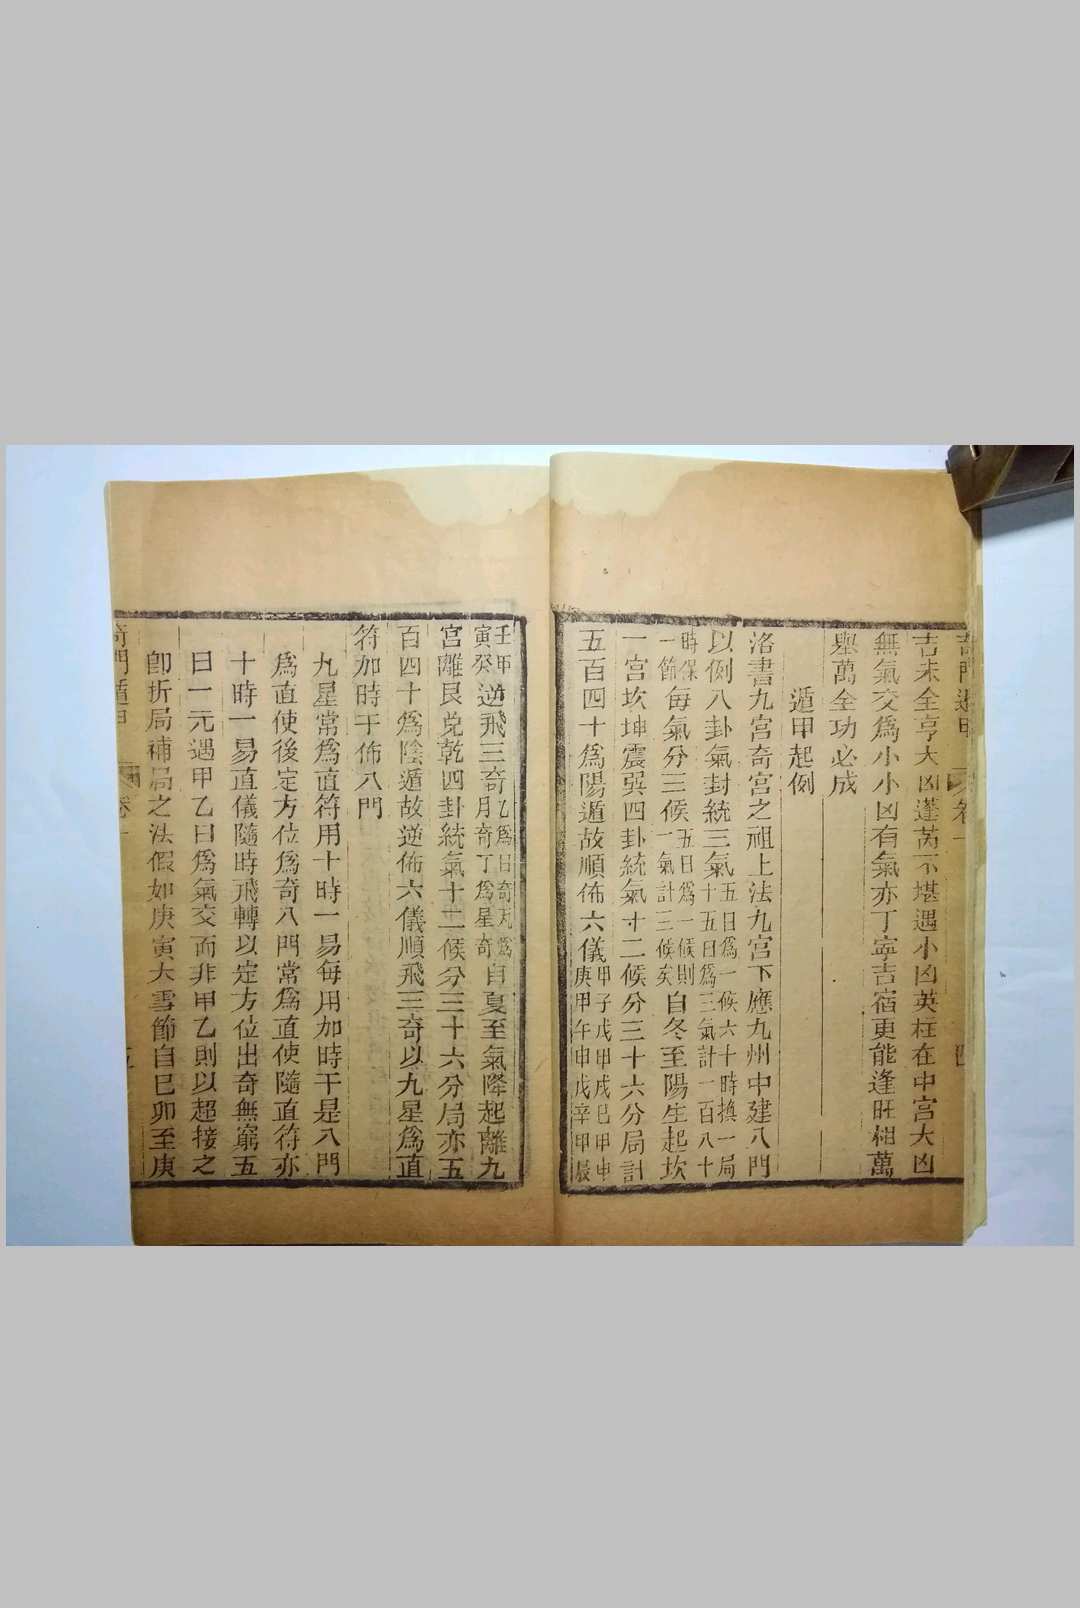 奇門遁甲
卷一
四
吉未全亨大凶蓬芮不堪遇小凶英柱在中宮大凶
無氣交為小小凶有氣亦丁寧吉宿更能逢旺相萬
舉萬全功必成
遁甲起例
洛書九宮奇宮之祖上法九宮下應九州中建八門
以例八卦氣封統三氣五日為一候六十時換一局十五日為三氣計一百八十
時保一節每氣分三候五日為一候則一氣計三候矣自冬至陽生起坎
一宮坎坤震巽四卦統氣十二候分三十六分局計
五百四十為陽遁故順佈六儀甲子戊甲戌己甲申庚甲午申戊辛甲辰
壬甲寅癸逆飛三奇乙為日奇丙為月奇丁為星奇自夏至氣降起離九
宮離艮兌乾四卦統氣十二候分三十六分局亦五
百四十為陰遁故逆佈六儀順飛三奇以九星為直
符加時干佈八門
九星常為直符用十時一易每用加時干是八門
為直使後定方位為奇八門常為直使隨直符亦
十時一易直儀隨時飛轉以定方位出奇無窮五
日一元遇甲乙日為氣交而非甲乙則以超接之
卽折局補局之法假如庚寅大雪節自巳卯至庚
奇門遁甲
卷一
五